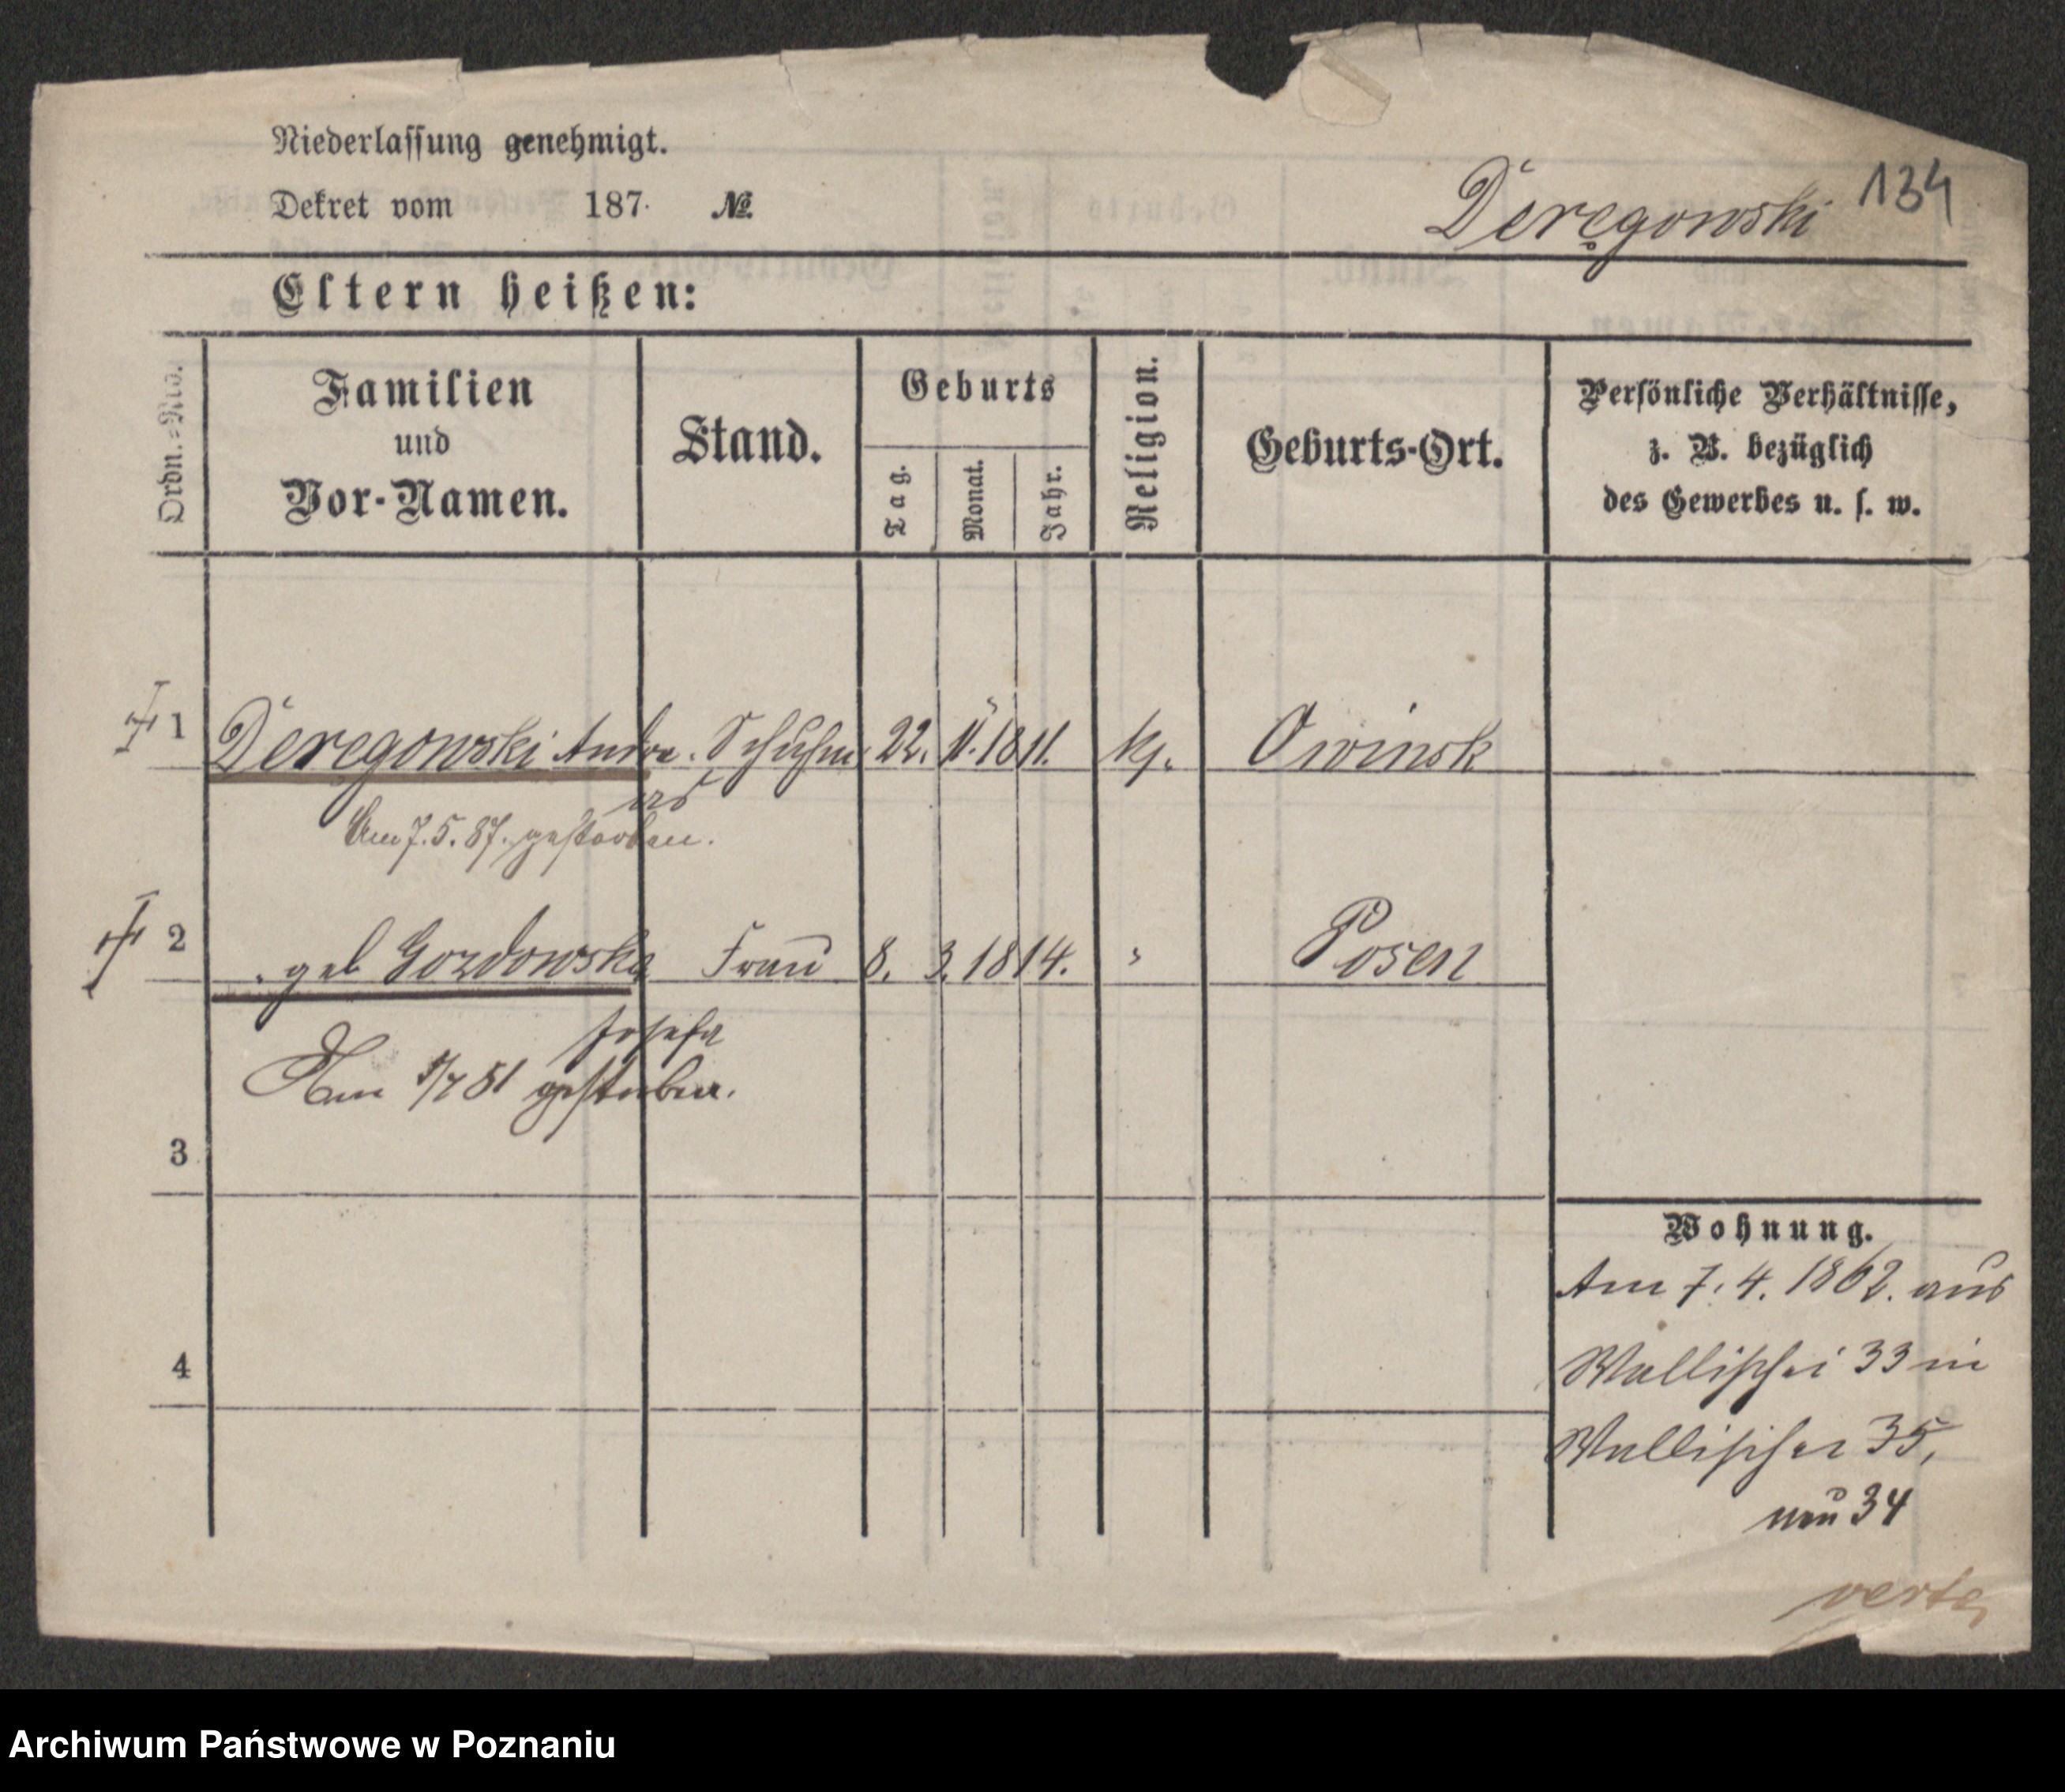 Niederlassung genehmigt.
Dekret vom 187 №
Deręgowski 134
Eltern heißen:
Ordn.-Nro.
Familien
und
Vor-Namen.
Stand.
Geburts
Tag.
Monat.
Jahr.
Religion.
Geburts-Ort.
Persönliche Verhältnisse,
z. B. bezüglich
des Gewerbes u. s. w.
1 Deręgowski Andre. Schuhm. 22. 11. 1811. kg. Owinsk
as
Am 7.5.87. gestorben.
2 " geb Gozdowska Frau 8. 3. 1814. " Posen
Josefa
Am 5/7 81 gestorben.
3
4
Wohnung.
Am 7. 4. 1862. aus
Wallischei 33 in
Wallischei 35,
neu 34
verte
Archiwum Państwowe w Poznaniu